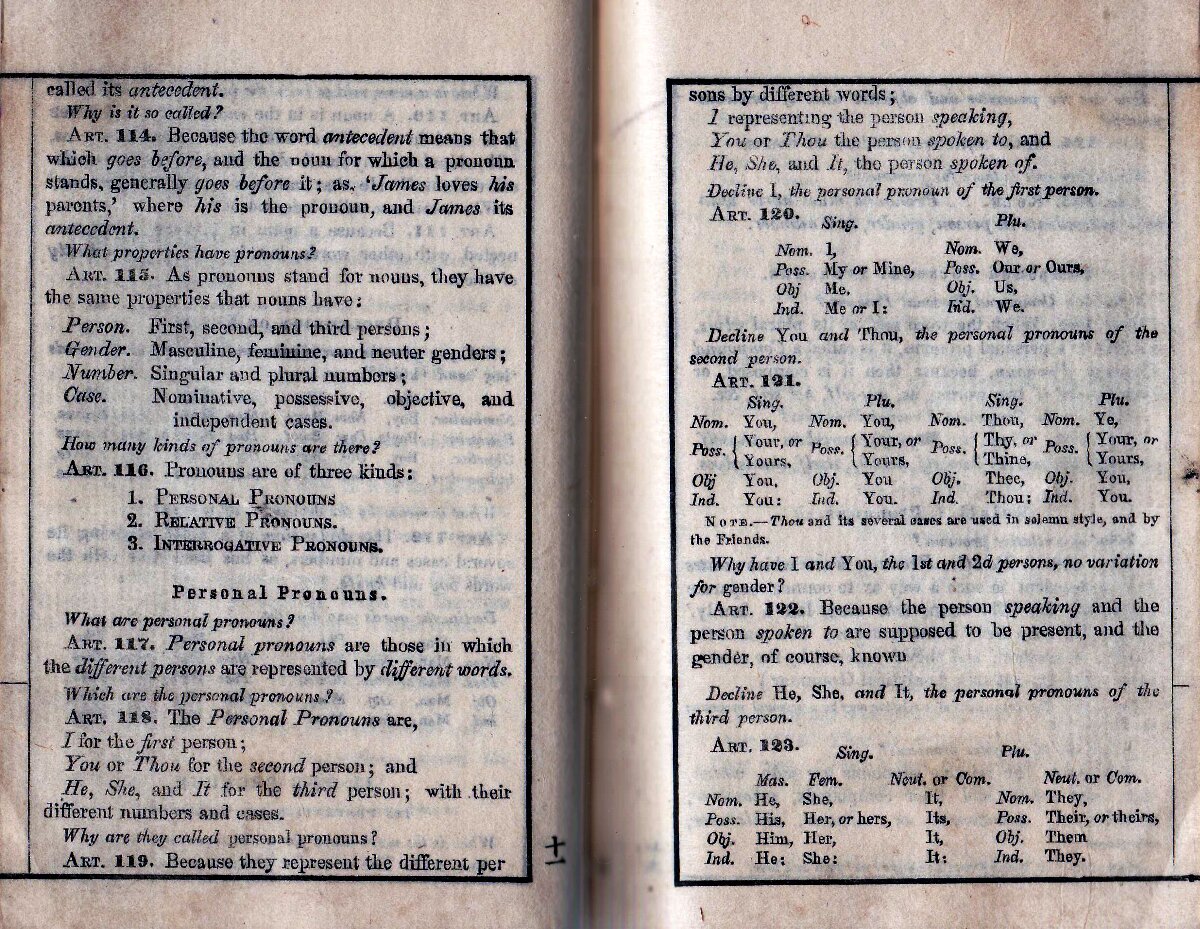 called its antecedent.
Why is it so called?
ART. 114. Because the word antecedent means that
which goes before, and the noun for which a pronoun
stands, generally goes before it; as, 'James loves his
parents,' where his is the pronoun, and James its
antecedent.
What properties have pronouns?
ART. 115. As pronouns stand for nouns, they have
the same properties that nouns have:
Person. First, second, and third persons;
Gender. Masculine, feminine, and neuter genders;
Number. Singular and plural numbers;
Case. Nominative, possessive, objective, and
independent cases.
How many kinds of pronouns are there?
ART. 116. Pronouns are of three kinds:
1. PERSONAL PRONOUNS
2. RELATIVE PRONOUNS.
3. INTERROGATIVE PRONOUNS.
Personal Pronouns.
What are personal pronouns?
ART. 117. Personal pronouns are those in which
the different persons are represented by different words.
Which are the personal pronouns?
ART. 118. The Personal Pronouns are,
I for the first person;
You or Thou for the second person; and
He, She, and It for the third person; with their
different numbers and cases.
Why are they called personal pronouns?
ART. 119. Because they represent the different per
sons by different words;
I representing the person speaking,
You or Thou the person spoken to, and
He, She, and It, the person spoken of.
Decline I, the personal pronoun of the first person.
ART. 120. Sing. Plu.
Nom. I, Nom. We,
Poss. My or Mine, Poss. Our or Ours,
Obj Me, Obj. Us,
Ind. Me or I: Ind. We.
Decline You and Thou, the personal pronouns of the
second person.
ART. 121.
Sing. Plu. Sing. Plu.
Nom. You, Nom. You, Nom. Thou, Nom. Ye,
Poss. { Your, or Poss. { Your, or Poss. { Thy, or Poss. { Your, or
Yours, Yours, Thine, Yours,
Obj You, Obj. You Obj. Thee, Obj. You,
Ind. You: Ind. You. Ind. Thou: Ind. You.
NOTE.—Thou and its several cases are used in solemn style, and by
the Friends.
Why have I and You, the 1st and 2d persons, no variation
for gender?
ART. 122. Because the person speaking and the
person spoken to are supposed to be present, and the
gender, of course, known
Decline He, She, and It, the personal pronouns of the
third person.
ART. 123. Sing. Plu.
Mas. Fem. Neut. or Com. Neut. or Com.
Nom. He, She, It, Nom. They,
Poss. His, Her, or hers, Its, Poss. Their, or theirs,
Obj. Him, Her, It, Obj. Them
Ind. He: She: It: Ind. They.